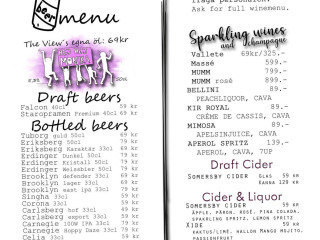 beer
menu
The View's egna öl: 69kr
Draft beers
Falcon 40cl 59 kr
Staropramen Premium 40cl 69 kr
Bottled beers
Tuborg guld 50cl 79 kr
Eriksberg 50cl 79 kr
Eriksberg Karaktär 33cl 69 kr
Erdinger Dunkel 50cl 79 kr
Erdinger Kristall 50cl 79 kr
Erdinger Weissbier 50cl 79 kr
Brooklyn defender 33cl 79 kr
Brooklyn lager 33cl 79 kr
Brooklyn east IPA 33cl 79 kr
Singha 33cl
Corona 33cl
Carlsberg hof 33cl
Carlsberg export 33cl
Carnegie 100W IPA 33cl
Carnegie Hoppy Daze 33cl 79 kr
fråga personalen!
Ask for full winemenu.
Sparkling wines
and champagne
Vallete 69kr/325.-
Massé 599.-
MUMM 799.-
MUMM rosé 899.-
BELLINI 89 kr
PEACHLIQUOR, CAVA
KIR ROYAL 89.-
CRÈME DE CASSIS, CAVA
MIMOSA 89 kr
APELSINJUICE, CAVA
APEROL SPRITZ 139.-
APEROL, CAVA, 7UP
Draft Cider
SOMERSBY CIDER GLAS 59 KR
KANNA 129 KR
Cider & Liquor
SOMERSBY CIDER 59 KR
ÄPPLE, PÄRON, ROSÉ, PINA COLADA,
SPARKLING SPRITZ, LEMON SPRITZ
XIDE 59 KR
KAKTUS/LIME, HALLON MANGO MOJITO,
PASSIONFRUIT